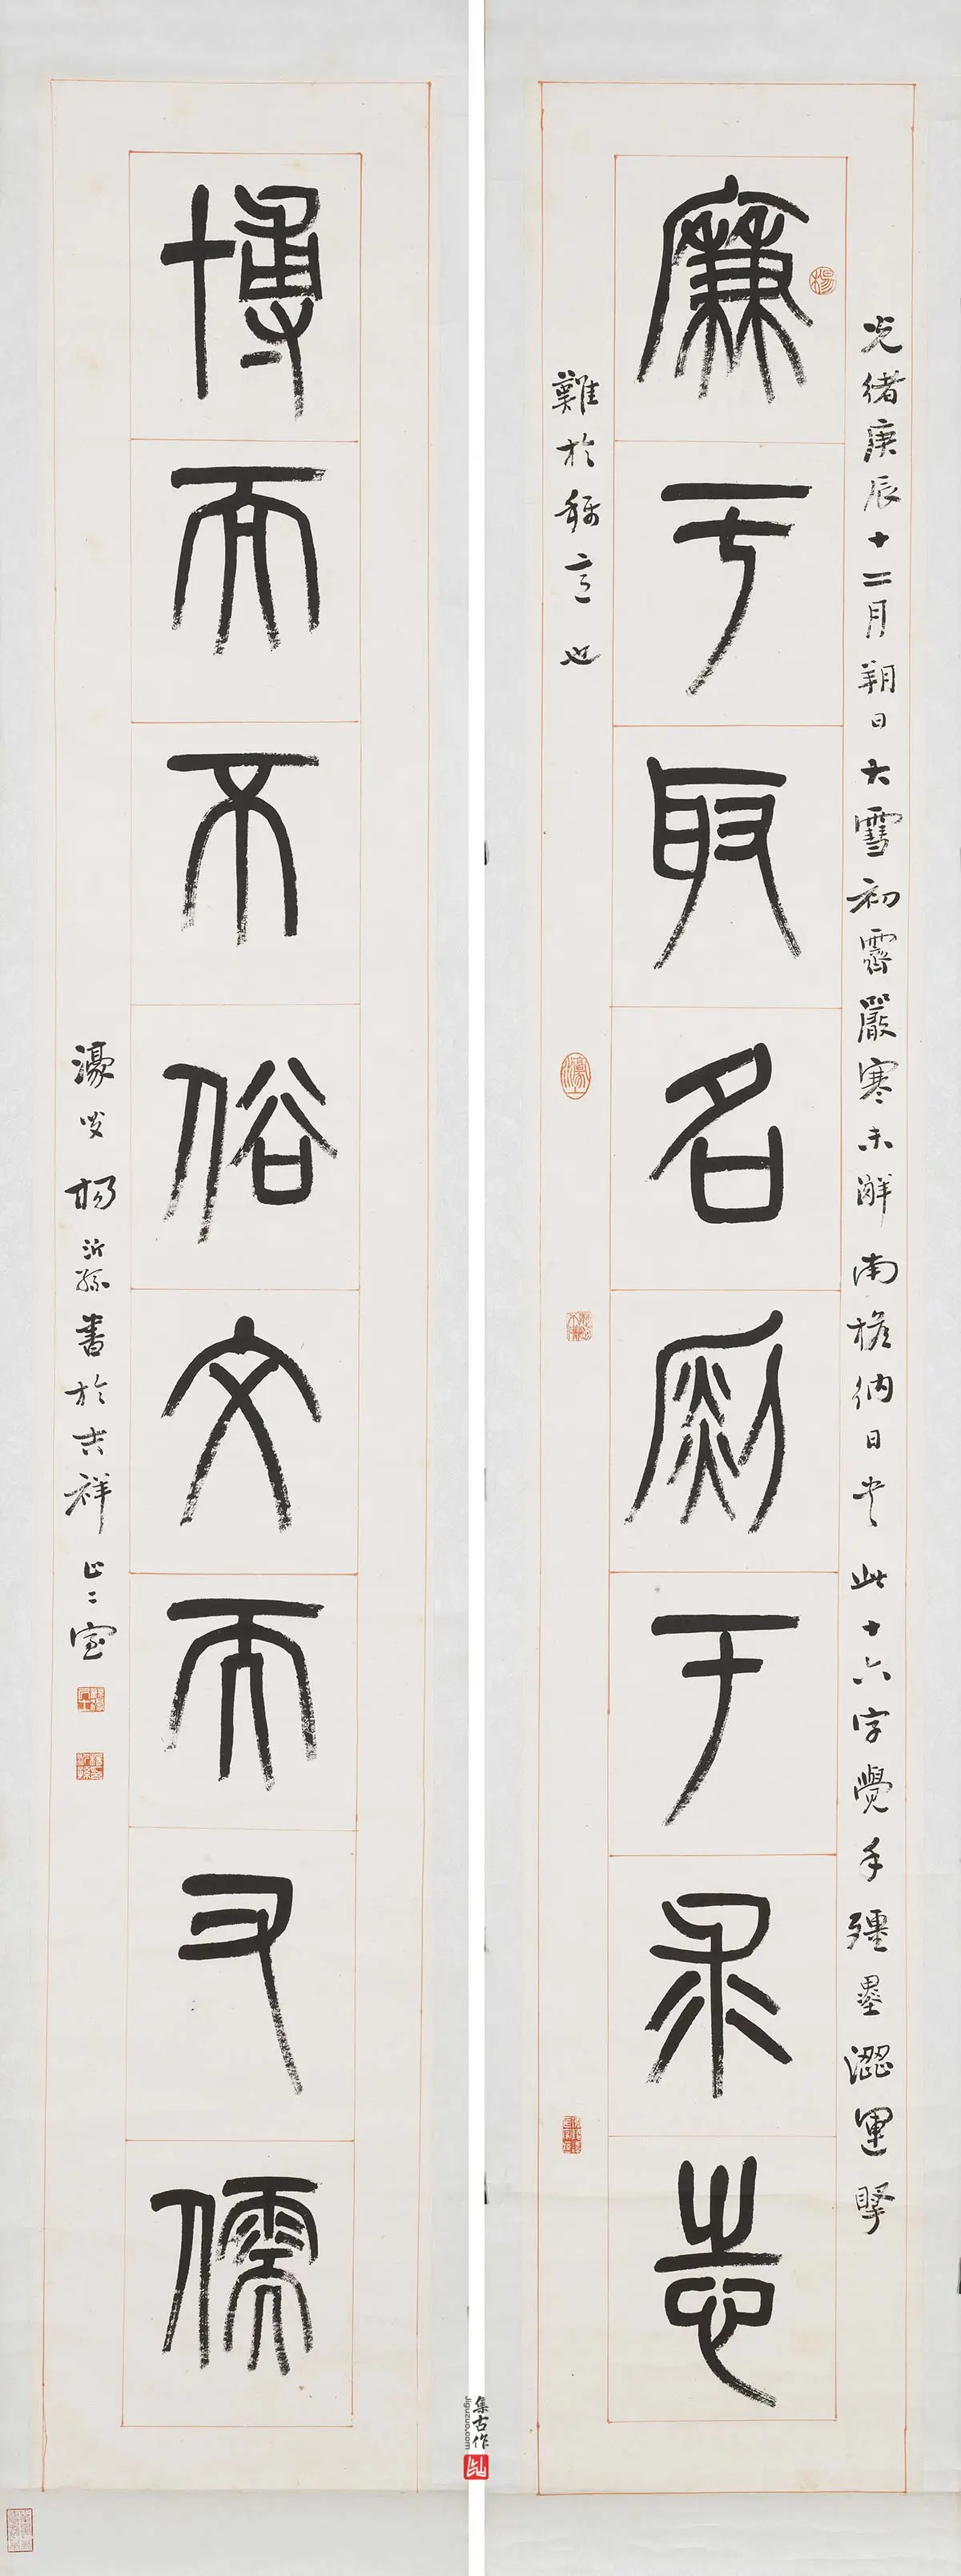 光緒庚辰十二月朔日大雪初霽嚴寒未解南檐納日書此十六字覺手殭墨澀運掔
楊
廉于取名銳于求志
難於稱意也
博而不俗文而又儒
濠叟楊沂孫書於吉祥止止室
集古作
jiguzuo.com